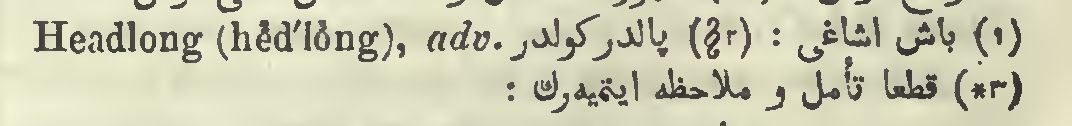 Headlong (hĕd'lŏng), adv. (١) باش اشاغی : (§٢) پالدر كولدر
(*٣) قطعا تأمل و ملاحظه ایتمیه‌رك :